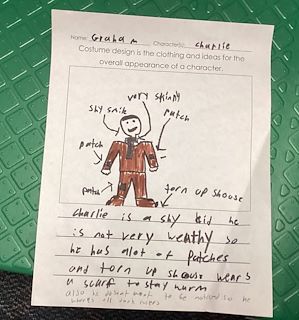 Name: Graham Character(s): charlie
Costume design is the clothing and ideas for the
overall appearance of a character.
very skinny
shy smile
patch
patch
patch
torn up shouse
charlie is a shy kid he
is not very wealthy so
he has alot of patches
and torn up shouse wears
a scarf to stay warm
also he doesnt want to be noticed so he